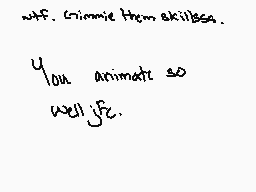 wtf. Gimmie them skillsss.
You animate so
well jfc.